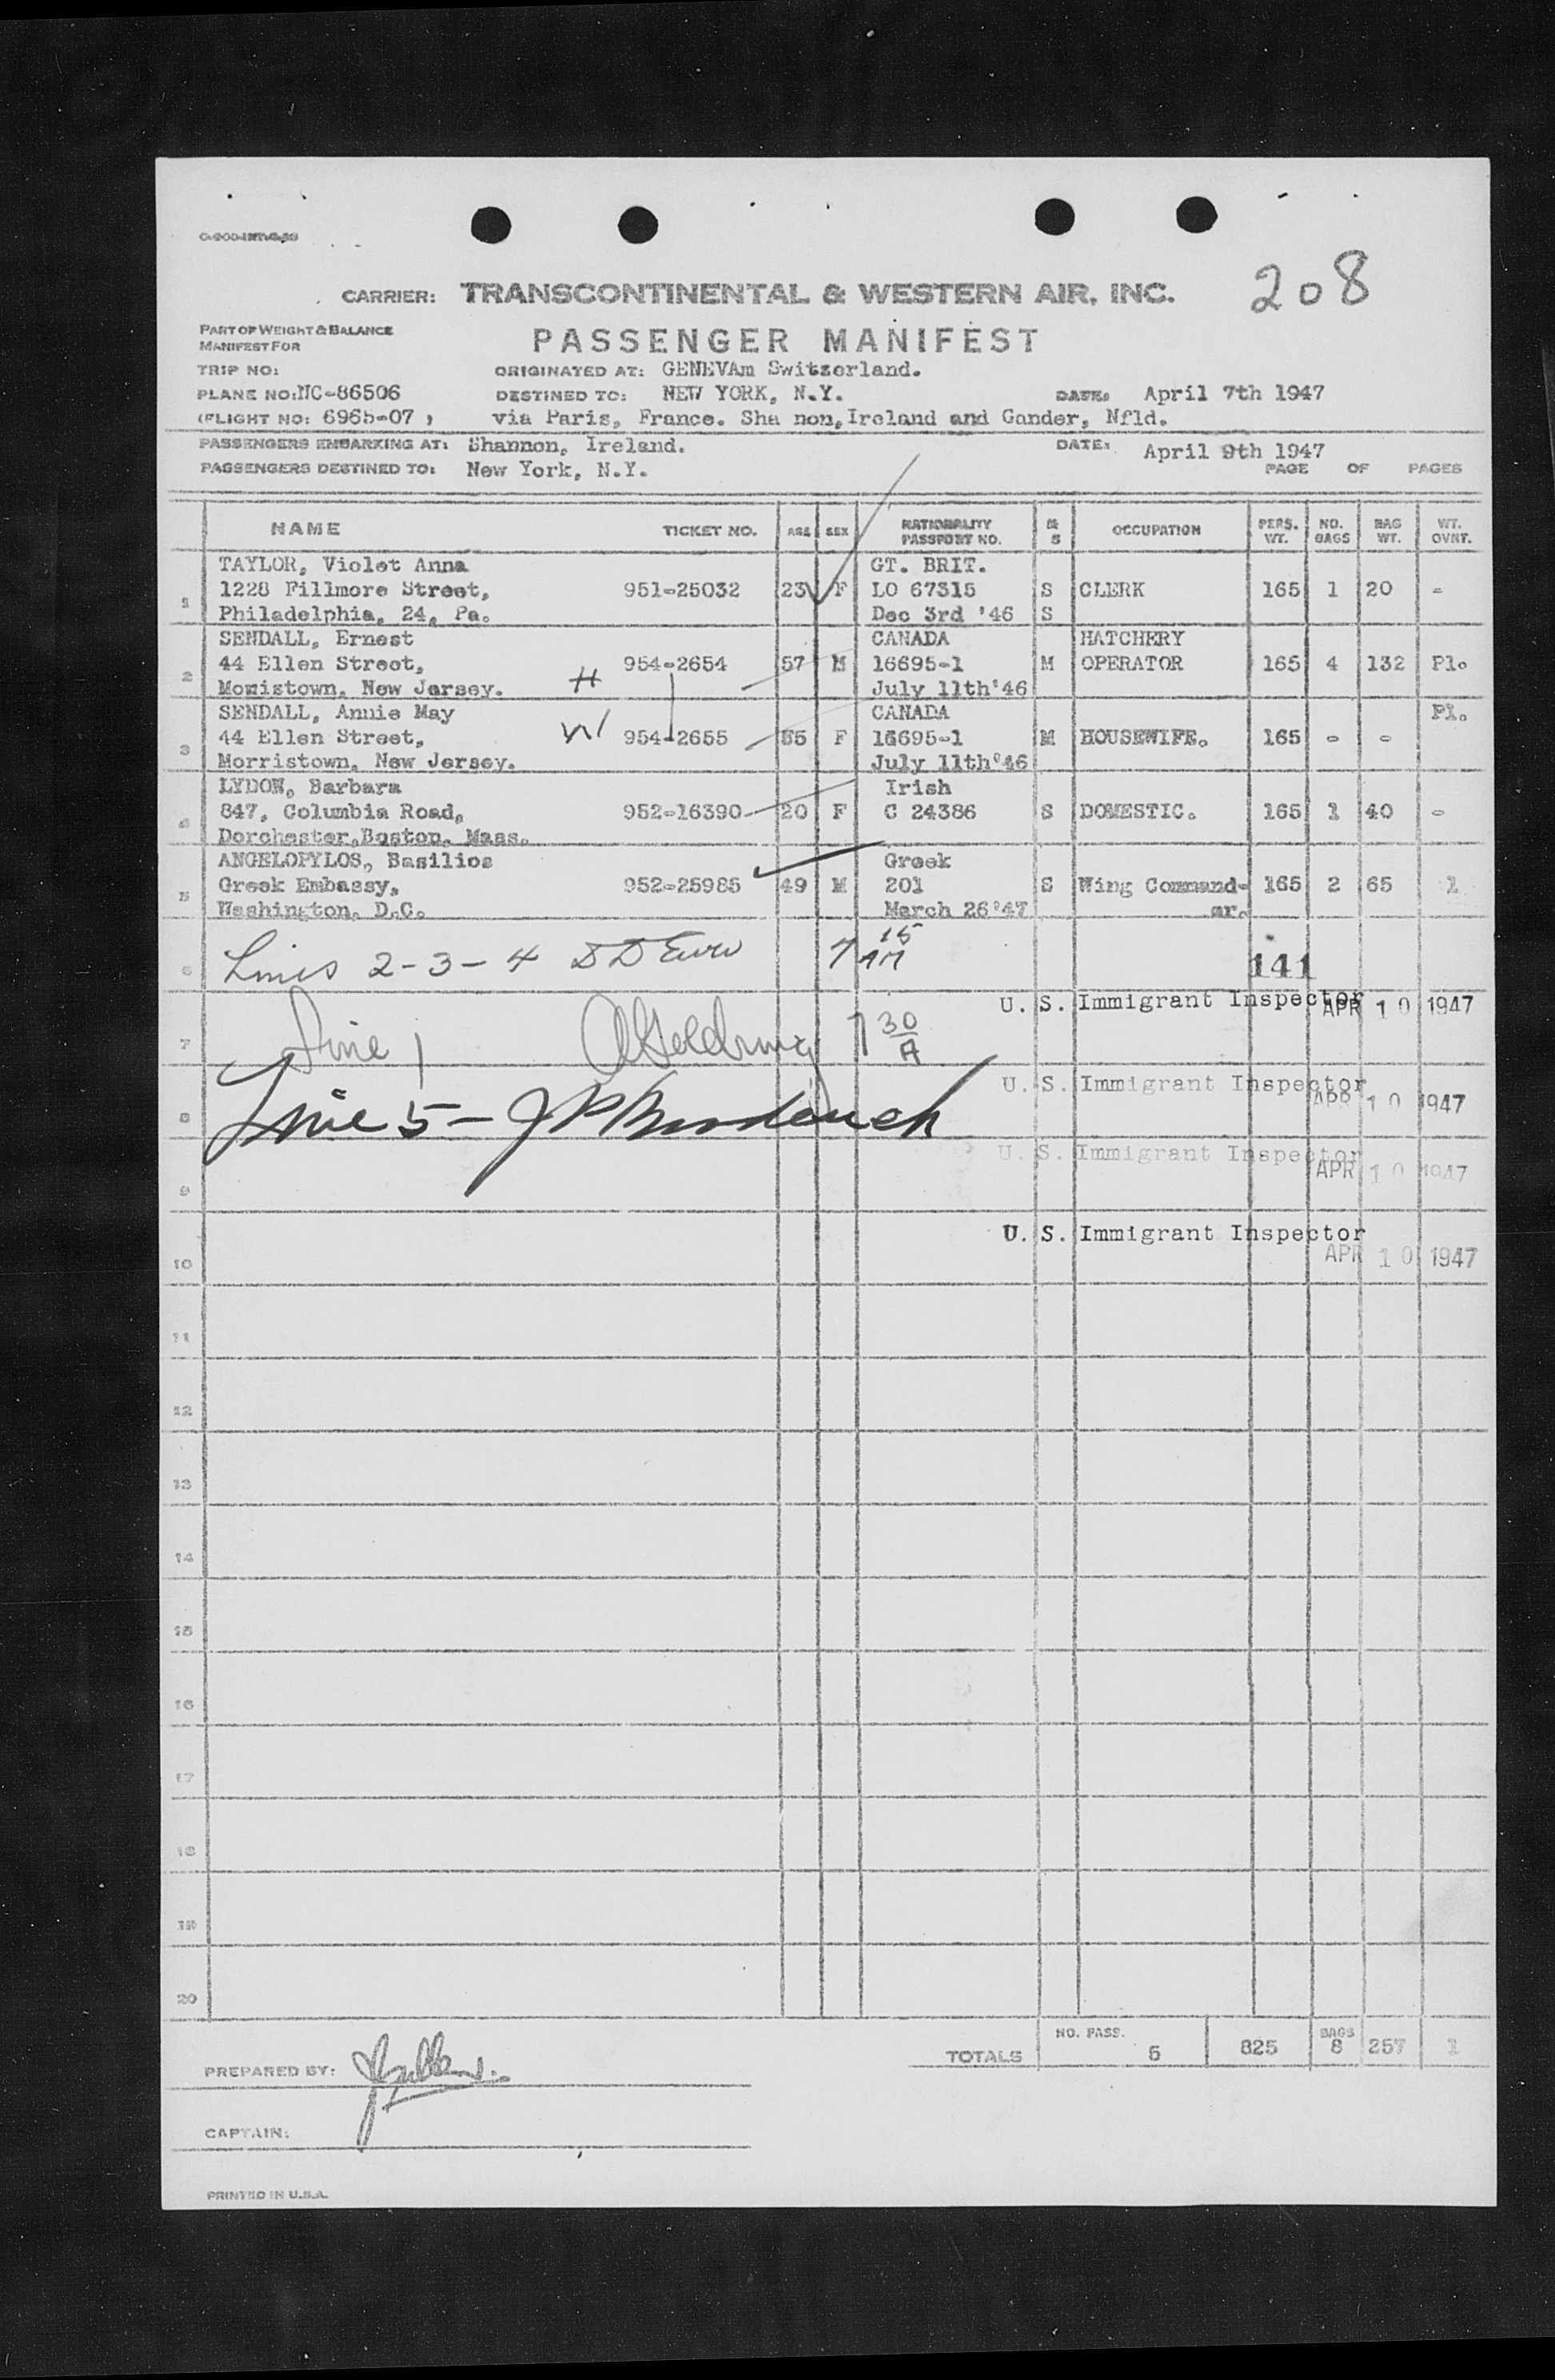 208
CARRIER: TRANSCONTINENTAL & WESTERN AIR, INC.
PART OF WEIGHT & BALANCE
MANIFEST FOR
PASSENGER MANIFEST
TRIP NO: ORIGINATED AT: GENEVAm Switzerland.
PLANE NO: NC-86506 DESTINED TO: NEW YORK, N.Y. DATE: April 7th 1947
(FLIGHT NO: 6965-07 ) via Paris, France. Sha non, Ireland and Gander, Nfld.
PASSENGERS EMBARKING AT: Shannon, Ireland. DATE: April 9th 1947
PASSENGERS DESTINED TO: New York, N.Y. PAGE OF PAGES
NAME TICKET NO. AGE SEX NATIONALITY PASSPORT NO. M S OCCUPATION PERS. WT. NO. BAGS BAG WT. WT. OVNT.
TAYLOR, Violet Anna GT. BRIT.
1 1228 Fillmore Street, 951-25032 23 F LO 67315 S CLERK 165 1 20 -
Philadelphia, 24, Pa. Dec 3rd '46 S
SENDALL, Ernest CANADA HATCHERY
2 44 Ellen Street, 954-2654 57 M 16695-1 M OPERATOR 165 4 132 Pl.
Morristown, New Jersey. H July 11th'46
SENDALL, Annie May CANADA Pl.
3 44 Ellen Street, W 954-2655 55 F 16695-1 M HOUSEWIFE. 165 - -
Morristown, New Jersey. July 11th'46
LYDON, Barbara Irish
4 847, Columbia Road, 952-16390 20 F C 24386 S DOMESTIC. 165 1 40 -
Dorchester, Boston, Mass.
ANGELOPYLOS, Basilios Greek
5 Greek Embassy, 952-25985 49 M 201 S Wing Command- 165 2 65 1
Washington, D.C. March 26'47 er.
6 Lines 2-3-4 7 15 AM 141
U. S. Immigrant Inspector APR 10 1947
7 Line 1 7 30 A
U. S. Immigrant Inspector APR 10 1947
8 Line 5 -
U. S. Immigrant Inspector APR 10 1947
9
U. S. Immigrant Inspector APR 10 1947
10
11
12
13
14
15
16
17
18
19
20
TOTALS NO. PASS. 5 825 BAGS 8 257 1
PREPARED BY:
CAPTAIN:
PRINTED IN U.S.A.